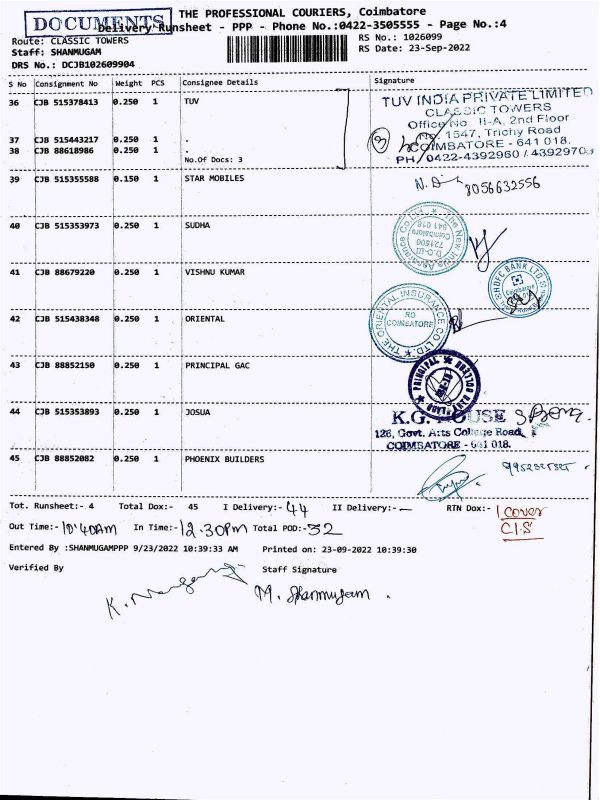 DOCUMENTS
THE PROFESSIONAL COURIERS, Coimbatore
Delivery Runsheet - PPP - Phone No.:0422-3505555 - Page No.:4
Route: CLASSIC TOWERS RS No.: 1026099
Staff: SHANMUGAM RS Date: 23-Sep-2022
DRS No.: DCJB102609904
S No Consignment No Weight PCS Consignee Details Signature
36 CJB 515378413 0.250 1 TUV
TUV INDIA PRIVATE LIMITED
CLASSIC TOWERS
Office No II-A, 2nd Floor
1547, Trichy Road
COIMBATORE - 641 018.
PH / 0422-4392960 / 43929703
3
37 CJB 515443217 0.250 1 .
38 CJB 88618986 0.250 1 .
No.Of Docs: 3
39 CJB 515355588 0.150 1 STAR MOBILES 8056632556
40 CJB 515353973 0.250 1 SUDHA
The New India Assurance Co. Ltd.
D.O-III
721500
Coimbatore
641 018
41 CJB 88679220 0.250 1 VISHNU KUMAR
HDFC BANK LTD
Coimbatore
42 CJB 515438348 0.250 1 ORIENTAL
THE ORIENTAL INSURANCE CO LTD.
RO
COIMBATORE
43 CJB 88852150 0.250 1 PRINCIPAL GAC
PRINCIPAL
44 CJB 515353893 0.250 1 JOSUA
K.G. HOUSE
126, Govt. Arts College Road,
COIMBATORE - 641 018.
45 CJB 88852082 0.250 1 PHOENIX BUILDERS
Tot. Runsheet:- 4 Total Dox:- 45 I Delivery:- 44 II Delivery:- — RTN Dox:- 1 cover
C.I.S
Out Time:- 10:40AM In Time:- 12.30Pm Total POD:- 32
Entered By :SHANMUGAMPPP 9/23/2022 10:39:33 AM Printed on: 23-09-2022 10:39:30
Verified By Staff Signature
M. Shanmugam.